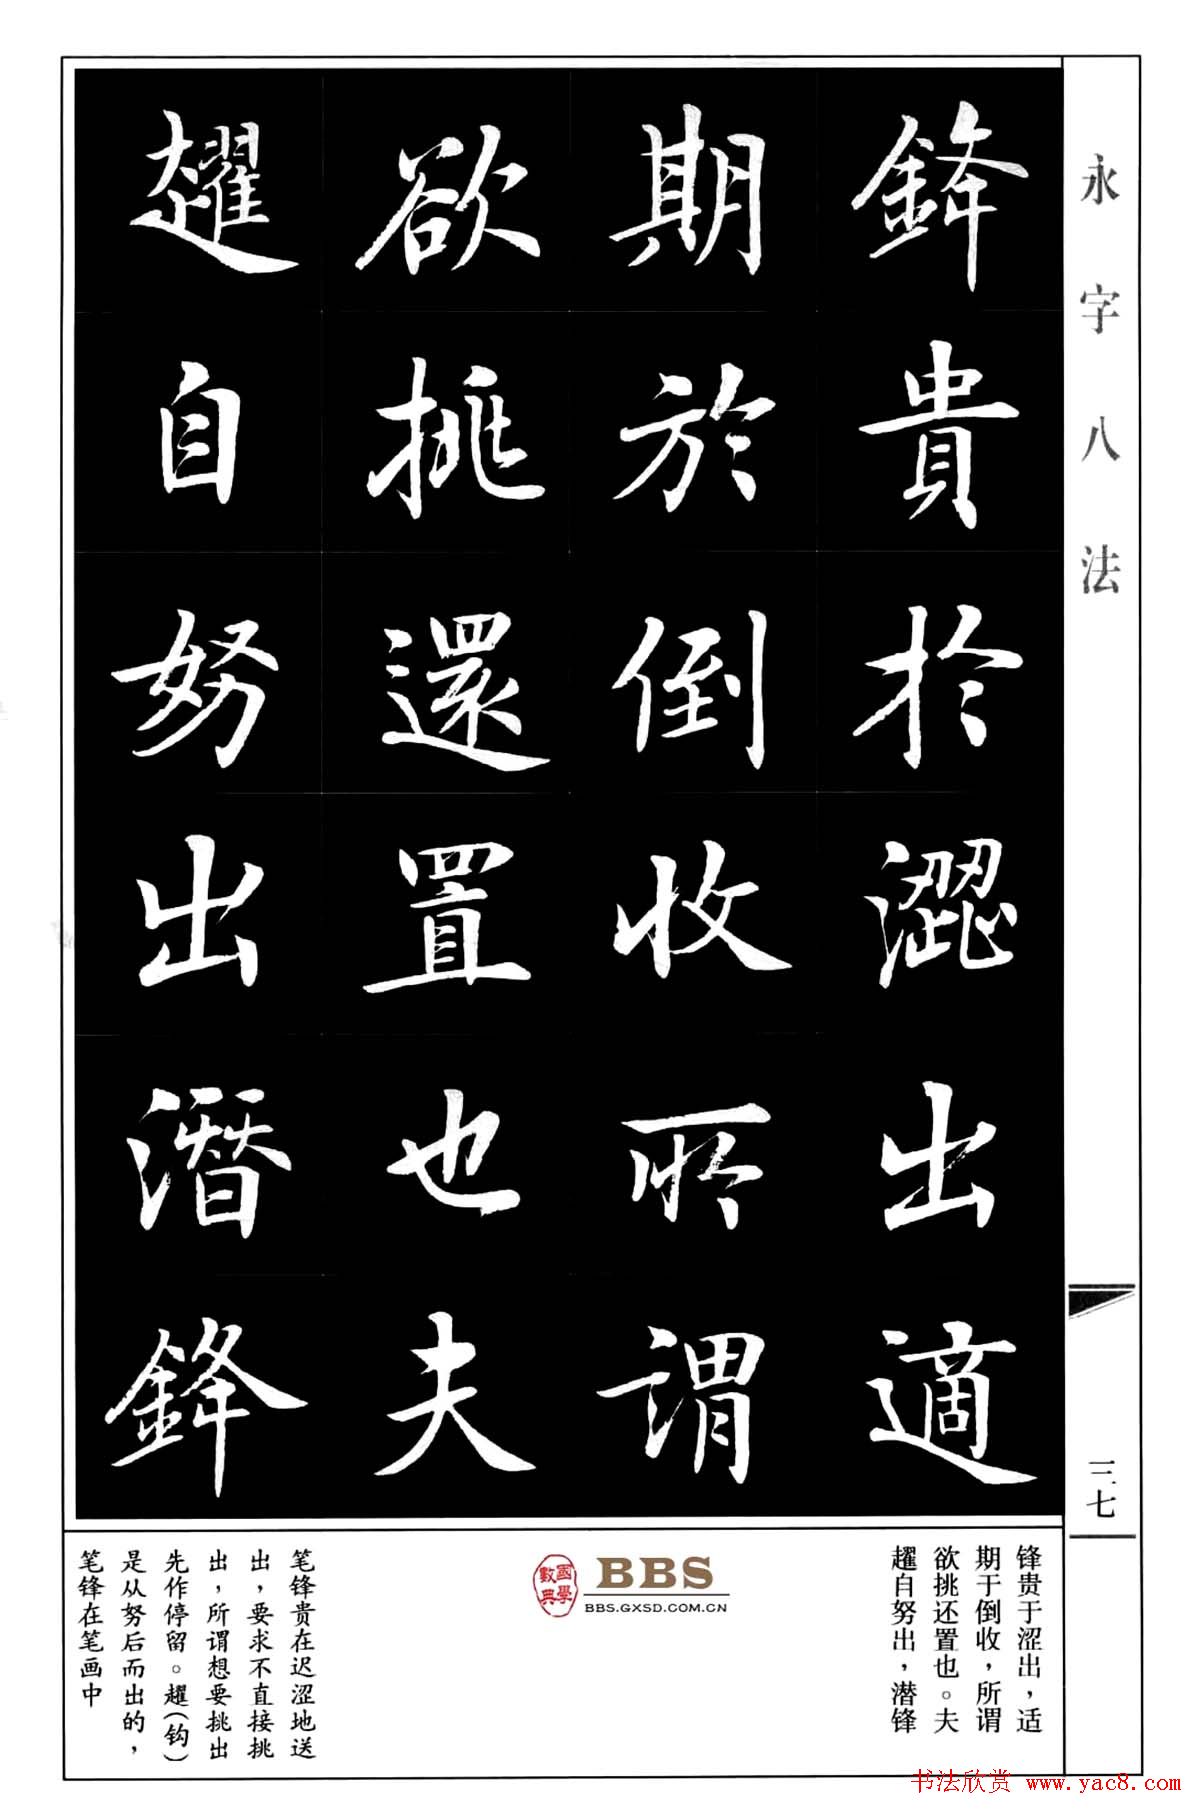 永字八法
鋒貴於澀出適
期於倒收所謂
欲挑還置也夫
趯自努出潛鋒
三七
锋贵于涩出，适
期于倒收，所谓
欲挑还置也。夫
趯自努出，潜锋
國學數典
BBS
BBS.GXSD.COM.CN
笔锋贵在迟涩地送
出，要求不直接挑
出，所谓想要挑出
先作停留。趯(钩)
是从努后而出的，
笔锋在笔画中
书法欣赏 www.yac8.com